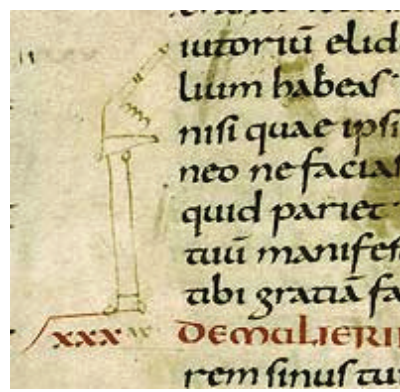 iutoriū elid
lium habeas
nisi quae ipsi
neo ne facias
quid pariet
tuū manifes
tibi gratiā fa
xxx DEMULIERI
rem sinus tu